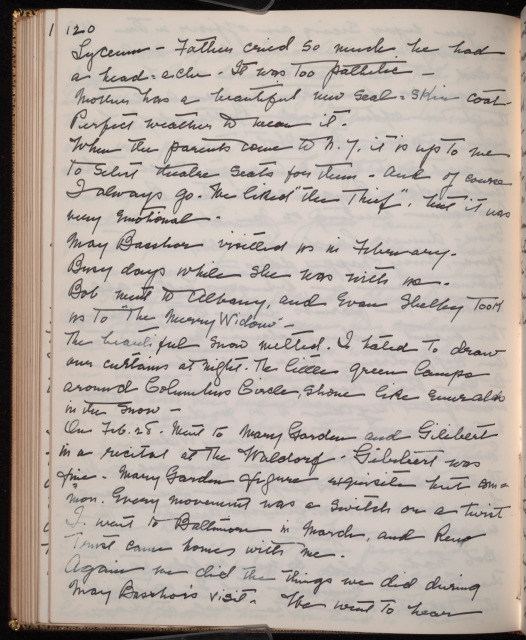 120
Lyceum - Father cried so much he had
a head=ache. It was too pathetic -
Mother has a beautiful new seal=skin coat.
Perfect weather to wear it.
When the parents come to N.Y. it is up to me
to select theatre seats for them - and of course
I always go. We liked "The Thief", but it was
very emotional.
May Basshor visited us in February.
Busy days while she was with us.
Bob went to Albany, and Evan Shelby took
us to "The Merry Widow" -
The beautiful snow melted. I hated to draw
our curtains at night. The little green lamps
around Columbus Circle, shone like emeralds
in the snow -
On Feb. 28. Went to Mary Garden and Gilibert
in a recital at the Waldorf. Gilibert was
fine. Mary Garden figure exquisite but com=
mon. Every movement was a switch or a twist
I went to Baltimore in March, and
came home with me.
Again we did the things we did during
May Basshor's visit. We went to hear